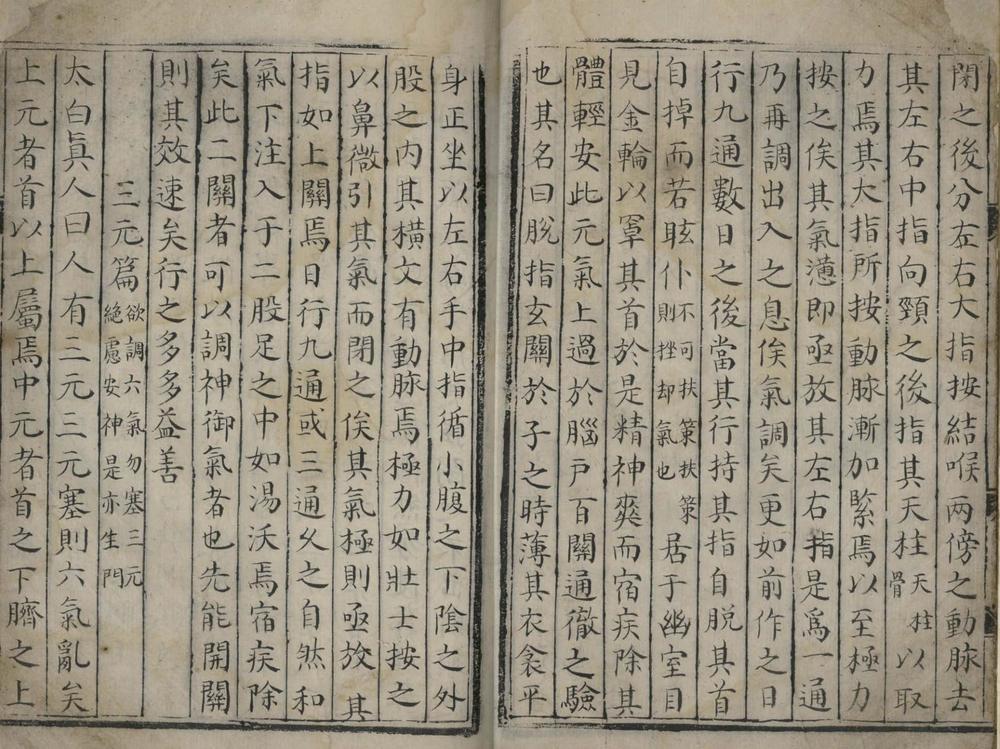 閉之後分左右大指按結喉兩傍之動脉去
其左右中指向頸之後指其天柱天柱骨以取
力焉其大指所按動脉漸加緊焉以至極力
按之俟其氣懣即亟放其左右指是爲一通
乃再調出入之息俟氣調矣更如前作之日
行九通數日之後當其行持其指自脱其首
自掉而若眩仆不可扶策扶策則挫却氣也居于幽室目
見金輪以罩其首於是精神爽而宿疾除其
體輕安此元氣上過於腦户百關通徹之驗
也其名曰脱指玄關於子之時薄其衣衾平
身正坐以左右手中指循小腹之下陰之外
股之内其横文有動脉焉極力如壯士按之
以鼻微引其氣而閉之俟其氣極則亟放其
指如上關焉日行九通或三通久之自然和
氣下注入于二股足之中如湯沃焉宿疾除
矣此二關者可以調神御氣者也先能開關
則其效速矣行之多多益善
三元篇欲調六氣勿塞三元絶慮安神是亦生門
太白眞人曰人有三元三元塞則六氣亂矣
上元者首以上屬焉中元者首之下臍之上